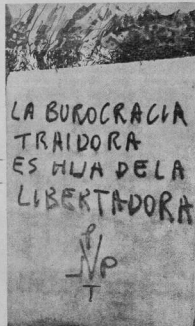 LA BUROCRACIA
TRAIDORA
ES HIJA DE LA
LIBERTADORA
P
J P
T